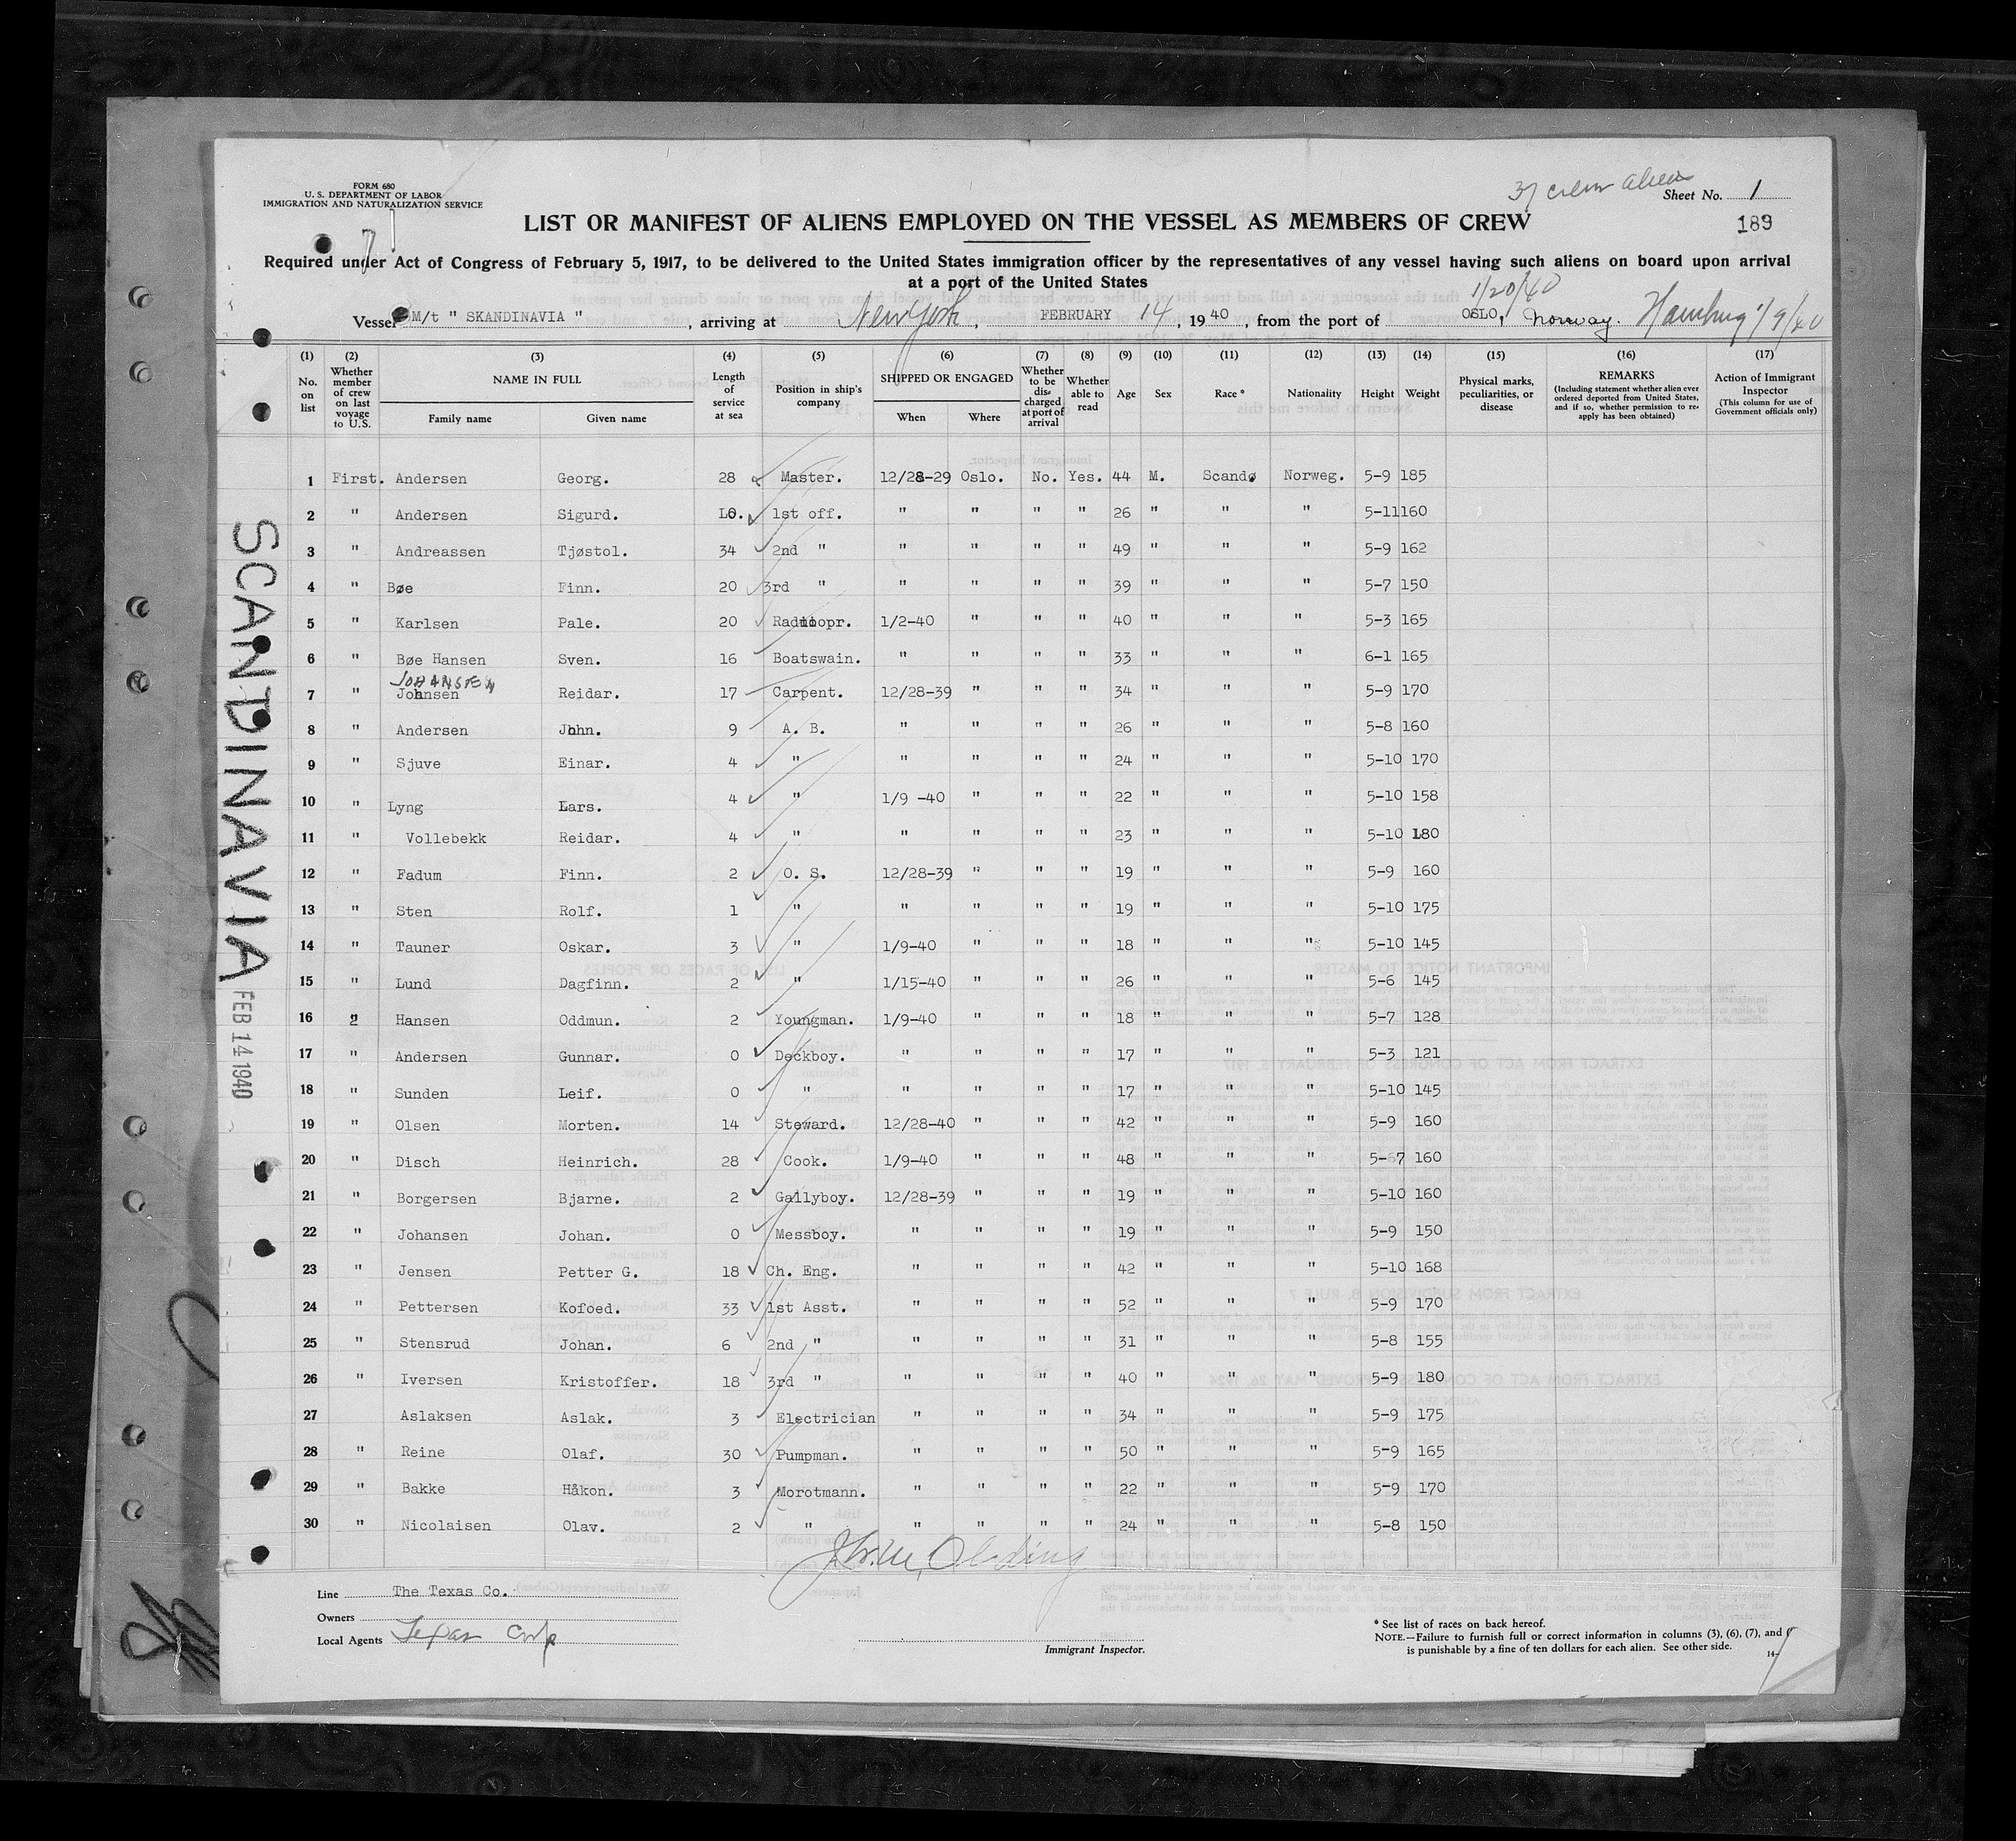 37 crew aliens
FORM 680
U. S. DEPARTMENT OF LABOR
IMMIGRATION AND NATURALIZATION SERVICE
Sheet No. 1
189
LIST OR MANIFEST OF ALIENS EMPLOYED ON THE VESSEL AS MEMBERS OF CREW
Required under Act of Congress of February 5, 1917, to be delivered to the United States immigration officer by the representatives of any vessel having such aliens on board upon arrival
at a port of the United States
1/20/40
Vessel M/t " SKANDINAVIA " , arriving at New York , FEBRUARY 14 , 19 40 , from the port of OSLO, Norway. Hamburg 1/9/40
(1) (2) (3) (4) (5) (6) (7) (8) (9) (10) (11) (12) (13) (14) (15) (16) (17)
No. on list Whether member of crew on last voyage to U.S. NAME IN FULL Family name Given name Length of service at sea Position in ship's company SHIPPED OR ENGAGED When Where Whether to be discharged at port of arrival Whether able to read Age Sex Race * Nationality Height Weight Physical marks, peculiarities, or disease REMARKS (Including statement whether alien ever ordered deported from United States, and if so, whether permission to reapply has been obtained) Action of Immigrant Inspector (This column for use of Government officials only)
1 First. Andersen Georg. 28 Master. 12/28-29 Oslo. No. Yes. 44 M. Scand. Norweg. 5-9 185
2 " Andersen Sigurd. 10. 1st off. " " " " 26 " " " 5-11 160
3 " Andreassen Tjøstol. 34 2nd " " " " " 49 " " " 5-9 162
4 " Bøe Finn. 20 3rd " " " " " 39 " " " 5-7 150
5 " Karlsen Pale. 20 Radioopr. 1/2-40 " " " 40 " " " 5-3 165
6 " Bøe Hansen Sven. 16 Boatswain. " " " " 33 " " " 6-1 165
JOHANSEN
7 " Johnsen Reidar. 17 Carpent. 12/28-39 " " " 34 " " " 5-9 170
8 " Andersen John. 9 A. B. " " " " 26 " " " 5-8 160
9 " Sjuve Einar. 4 " " " " " 24 " " " 5-10 170
10 " Lyng Lars. 4 " 1/9 -40 " " " 22 " " " 5-10 158
11 " Vollebekk Reidar. 4 " " " " " 23 " " " 5-10 180
12 " Fadum Finn. 2 O. S. 12/28-39 " " " 19 " " " 5-9 160
13 " Sten Rolf. 1 " " " " " 19 " " " 5-10 175
14 " Tauner Oskar. 3 " 1/9-40 " " " 18 " " " 5-10 145
15 " Lund Dagfinn. 2 " 1/15-40 " " " 26 " " " 5-6 145
16 " Hansen Oddmun. 2 Youngman. 1/9-40 " " " 18 " " " 5-7 128
17 " Andersen Gunnar. 0 Deckboy. " " " " 17 " " " 5-3 121
18 " Sunden Leif. 0 " " " " " 17 " " " 5-10 145
19 " Olsen Morten. 14 Steward. 12/28-40 " " " 42 " " " 5-9 160
20 " Disch Heinrich. 28 Cook. 1/9-40 " " " 48 " " " 5-67 160
21 " Borgersen Bjarne. 2 Gallyboy. 12/28-39 " " " 19 " " " 5-10 160
22 " Johansen Johan. 0 Messboy. " " " " 19 " " " 5-9 150
23 " Jensen Petter G. 18 Ch. Eng. " " " " 42 " " " 5-10 168
24 " Pettersen Kofoed. 33 1st Asst. " " " " 52 " " " 5-9 170
25 " Stensrud Johan. 6 2nd " " " " " 31 " " " 5-8 155
26 " Iversen Kristoffer. 18 3rd " " " " " 40 " " " 5-9 180
27 Aslaksen Aslak. 3 Electrician " " " " 34 " " " 5-9 175
28 " Reine Olaf. 30 Pumpman. " " " " 50 " " " 5-9 165
29 " Bakke Håkon. 3 Morotmann. " " " " 22 " " " 5-9 170
30 " Nicolaisen Olav. 2 " " " " " 24 " " " 5-8 150
SCANDINAVIA FEB 14 1940
Line The Texas Co.
Owners
Local Agents Texas Corp
Immigrant Inspector.
* See list of races on back hereof.
NOTE.—Failure to furnish full or correct information in columns (3), (6), (7), and
is punishable by a fine of ten dollars for each alien. See other side.
14-